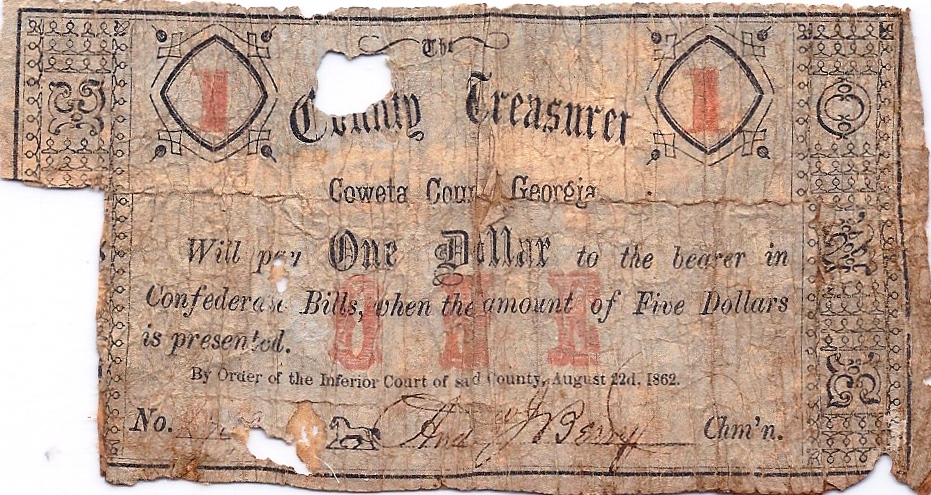 The
1 County Treasurer 1
Coweta Georgia
Will pay One Dollar to the bearer in
Confederate Bills, when the amount of Five Dollars
is presented.
ONE
By Order of the Inferior Court of said County, August 22d, 1862.
No. Chm'n.